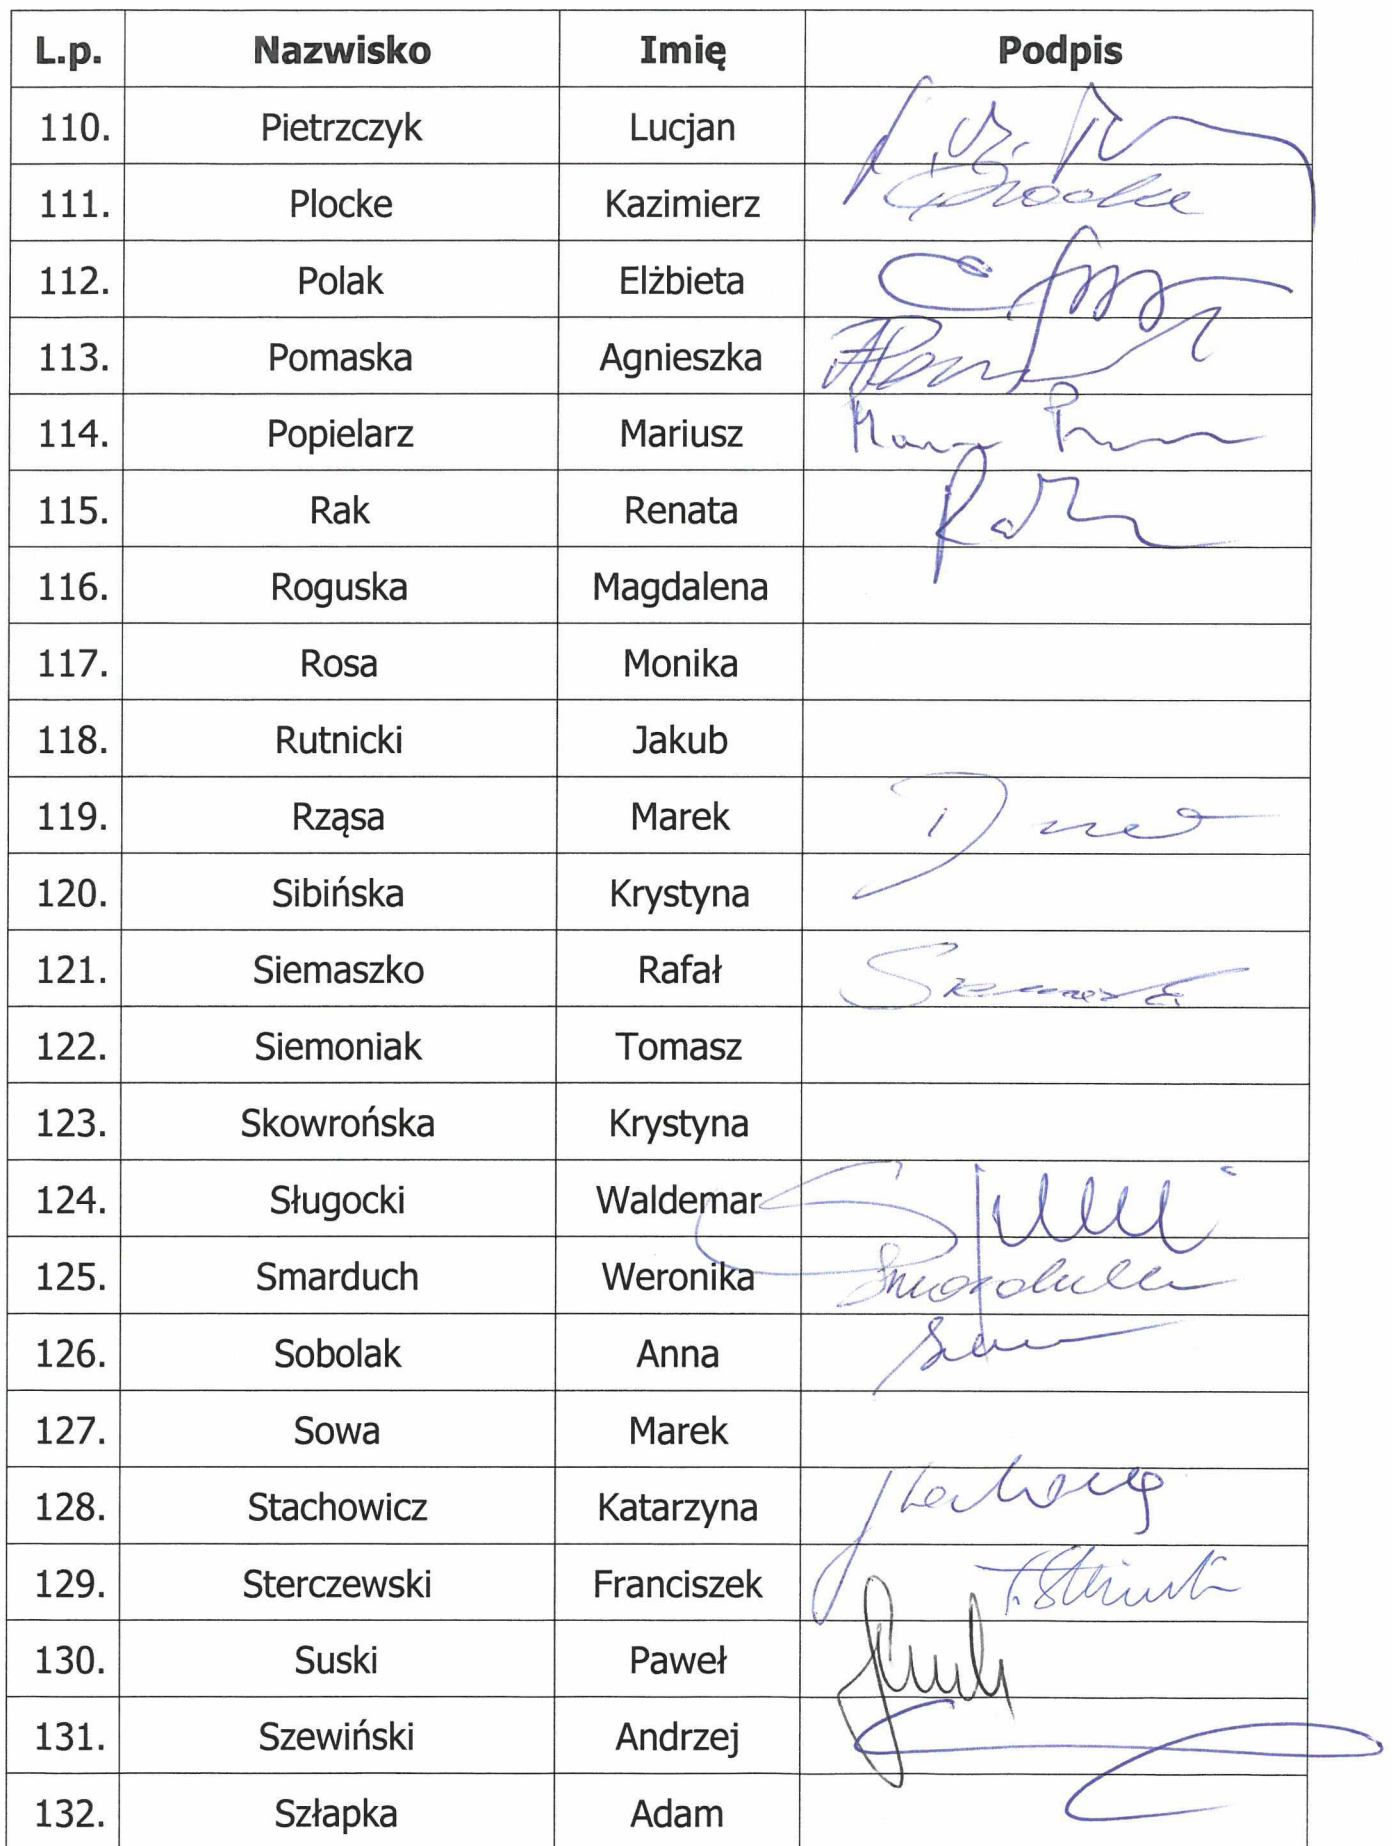 L.p. Nazwisko Imię Podpis
110. Pietrzczyk Lucjan
111. Plocke Kazimierz
112. Polak Elżbieta
113. Pomaska Agnieszka
114. Popielarz Mariusz
115. Rak Renata
116. Roguska Magdalena
117. Rosa Monika
118. Rutnicki Jakub
119. Rząsa Marek
120. Sibińska Krystyna
121. Siemaszko Rafał
122. Siemoniak Tomasz
123. Skowrońska Krystyna
124. Sługocki Waldemar
125. Smarduch Weronika
126. Sobolak Anna
127. Sowa Marek
128. Stachowicz Katarzyna
129. Sterczewski Franciszek
130. Suski Paweł
131. Szewiński Andrzej
132. Szłapka Adam